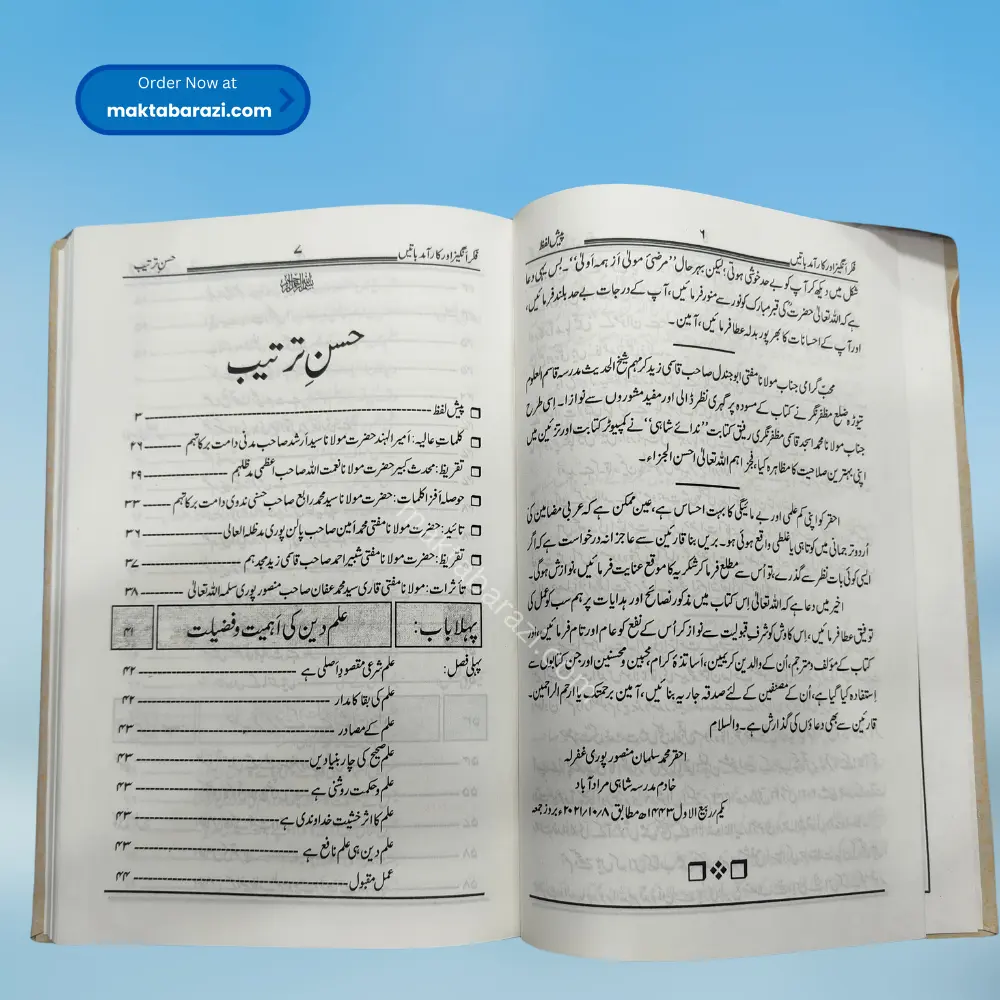 Order Now at
maktabarazi.com
پیش لفظ
۶
فکر انگیز اور کارآمد باتیں
شکل میں دیکھ کر آپ کو بے حد خوشی ہوتی؛ لیکن بہرحال ’’مرضیٔ مولیٰ اَز ہمہ اَولیٰ‘‘۔ بس یہی دعا
ہے کہ اللہ تعالیٰ حضرتؒ کی قبر مبارک کو نور سے منور فرمائیں، آپ کے درجات بے حد بلند فرمائیں،
اور آپ کے احسانات کا بھرپور بدلہ عطا فرمائیں، آمین۔
محبّ گرامی جناب مولانا مفتی ابوجندل صاحب قاسمی زید کرمہم شیخ الحدیث مدرسہ قاسم العلوم
تیوڑہ ضلع مظفرنگر نے کتاب کے مسودہ پر گہری نظر ڈالی اور مفید مشوروں سے نوازا۔ اسی طرح
جناب مولانا محمد اسجد قاسمی مظفرنگری رفیق کتابت ’’ندائے شاہی‘‘ نے کمپیوٹر کتابت اور تزئین میں
اپنی بہترین صلاحیت کا مظاہرہ کیا، فجزاہم اللہ تعالیٰ احسن الجزاء۔
احقر کو اپنی کم علمی اور بے مائیگی کا بہت احساس ہے، عین ممکن ہے کہ عربی مضامین کی
اُردو ترجمانی میں کوتاہی یا غلطی واقع ہوئی ہو۔ بریں بنا قارئین سے عاجزانہ درخواست ہے کہ اگر
ایسی کوئی بات نظر سے گذرے، تو اُس سے مطلع فرماکر شکریہ کا موقع عنایت فرمائیں، نوازش ہوگی۔
اخیر میں دعا ہے کہ اللہ تعالیٰ اِس کتاب میں مذکور نصائح اور ہدایات پر ہم سب کو عمل کی
توفیق عطا فرمائیں، اِس کاوش کو شرفِ قبولیت سے نواز کر اُس کے نفع کو عام اور تام فرمائیں، اور
کتاب کے مؤلف ومترجم، اُن کے والدین کریمین، اَساتذۂ کرام، محبین ومحسنین اور جن کتابوں سے
اِستفادہ کیا گیا ہے، اُن کے مصنفین کے لئے صدقہ جاریہ بنائیں، آمین برحمتک یا ارحم الراحمین۔
قارئین سے بھی دعاؤں کی گذارش ہے۔ والسلام
احقر محمد سلمان منصورپوری غفرلہ
خادم مدرسہ شاہی مرادآباد
یکم؍ربیع الاول ۱۴۴۳ھ مطابق ۸؍۱۰؍۲۰۲۱ء بروز جمعہ
فکر انگیز اور کارآمد باتیں
۷
حسن ترتیب
حسنِ ترتیب
❒ پیش لفظ ---- ۳
❒ کلماتِ عالیہ: اَمیر الہند حضرت مولانا سید اَرشد صاحب مدنی دامت برکاتہم ---- ۲۶
❒ تقریظ: محدث کبیر حضرت مولانا نعمت اللہ صاحب اعظمی مدظلہم ---- ۲۹
❒ حوصلہ اَفزا کلمات: حضرت مولانا سید محمد رابع صاحب حسنی ندوی دامت برکاتہم ---- ۳۳
❒ تائید: حضرت مولانا مفتی محمد اَمین صاحب پالن پوری مدظلہ العالی ---- ۳۶
❒ تقریظ: حضرت مولانا مفتی شبیر احمد صاحب قاسمی زید مجدہم ---- ۳۷
❒ تأثرات: مولانا مفتی قاری سید محمد عفان صاحب منصورپوری سلمہ اللہ تعالیٰ ---- ۳۸
پہلا باب: علم دین کی اَہمیت وفضیلت ۴۱
پہلی فصل: علم شرعی مقصودِ اَصلی ہے ---- ۴۲
علم کی بقا کا مدار ---- ۴۲
علم کے مصادر ---- ۴۳
علم صحیح کی چار بنیادیں ---- ۴۳
علم وحکمت روشنی ہے ---- ۴۳
علم کا اثر خشیت خداوندی ہے ---- ۴۳
علم دین ہی علم نافع ہے ---- ۴۳
عمل مقبول ---- ۴۴